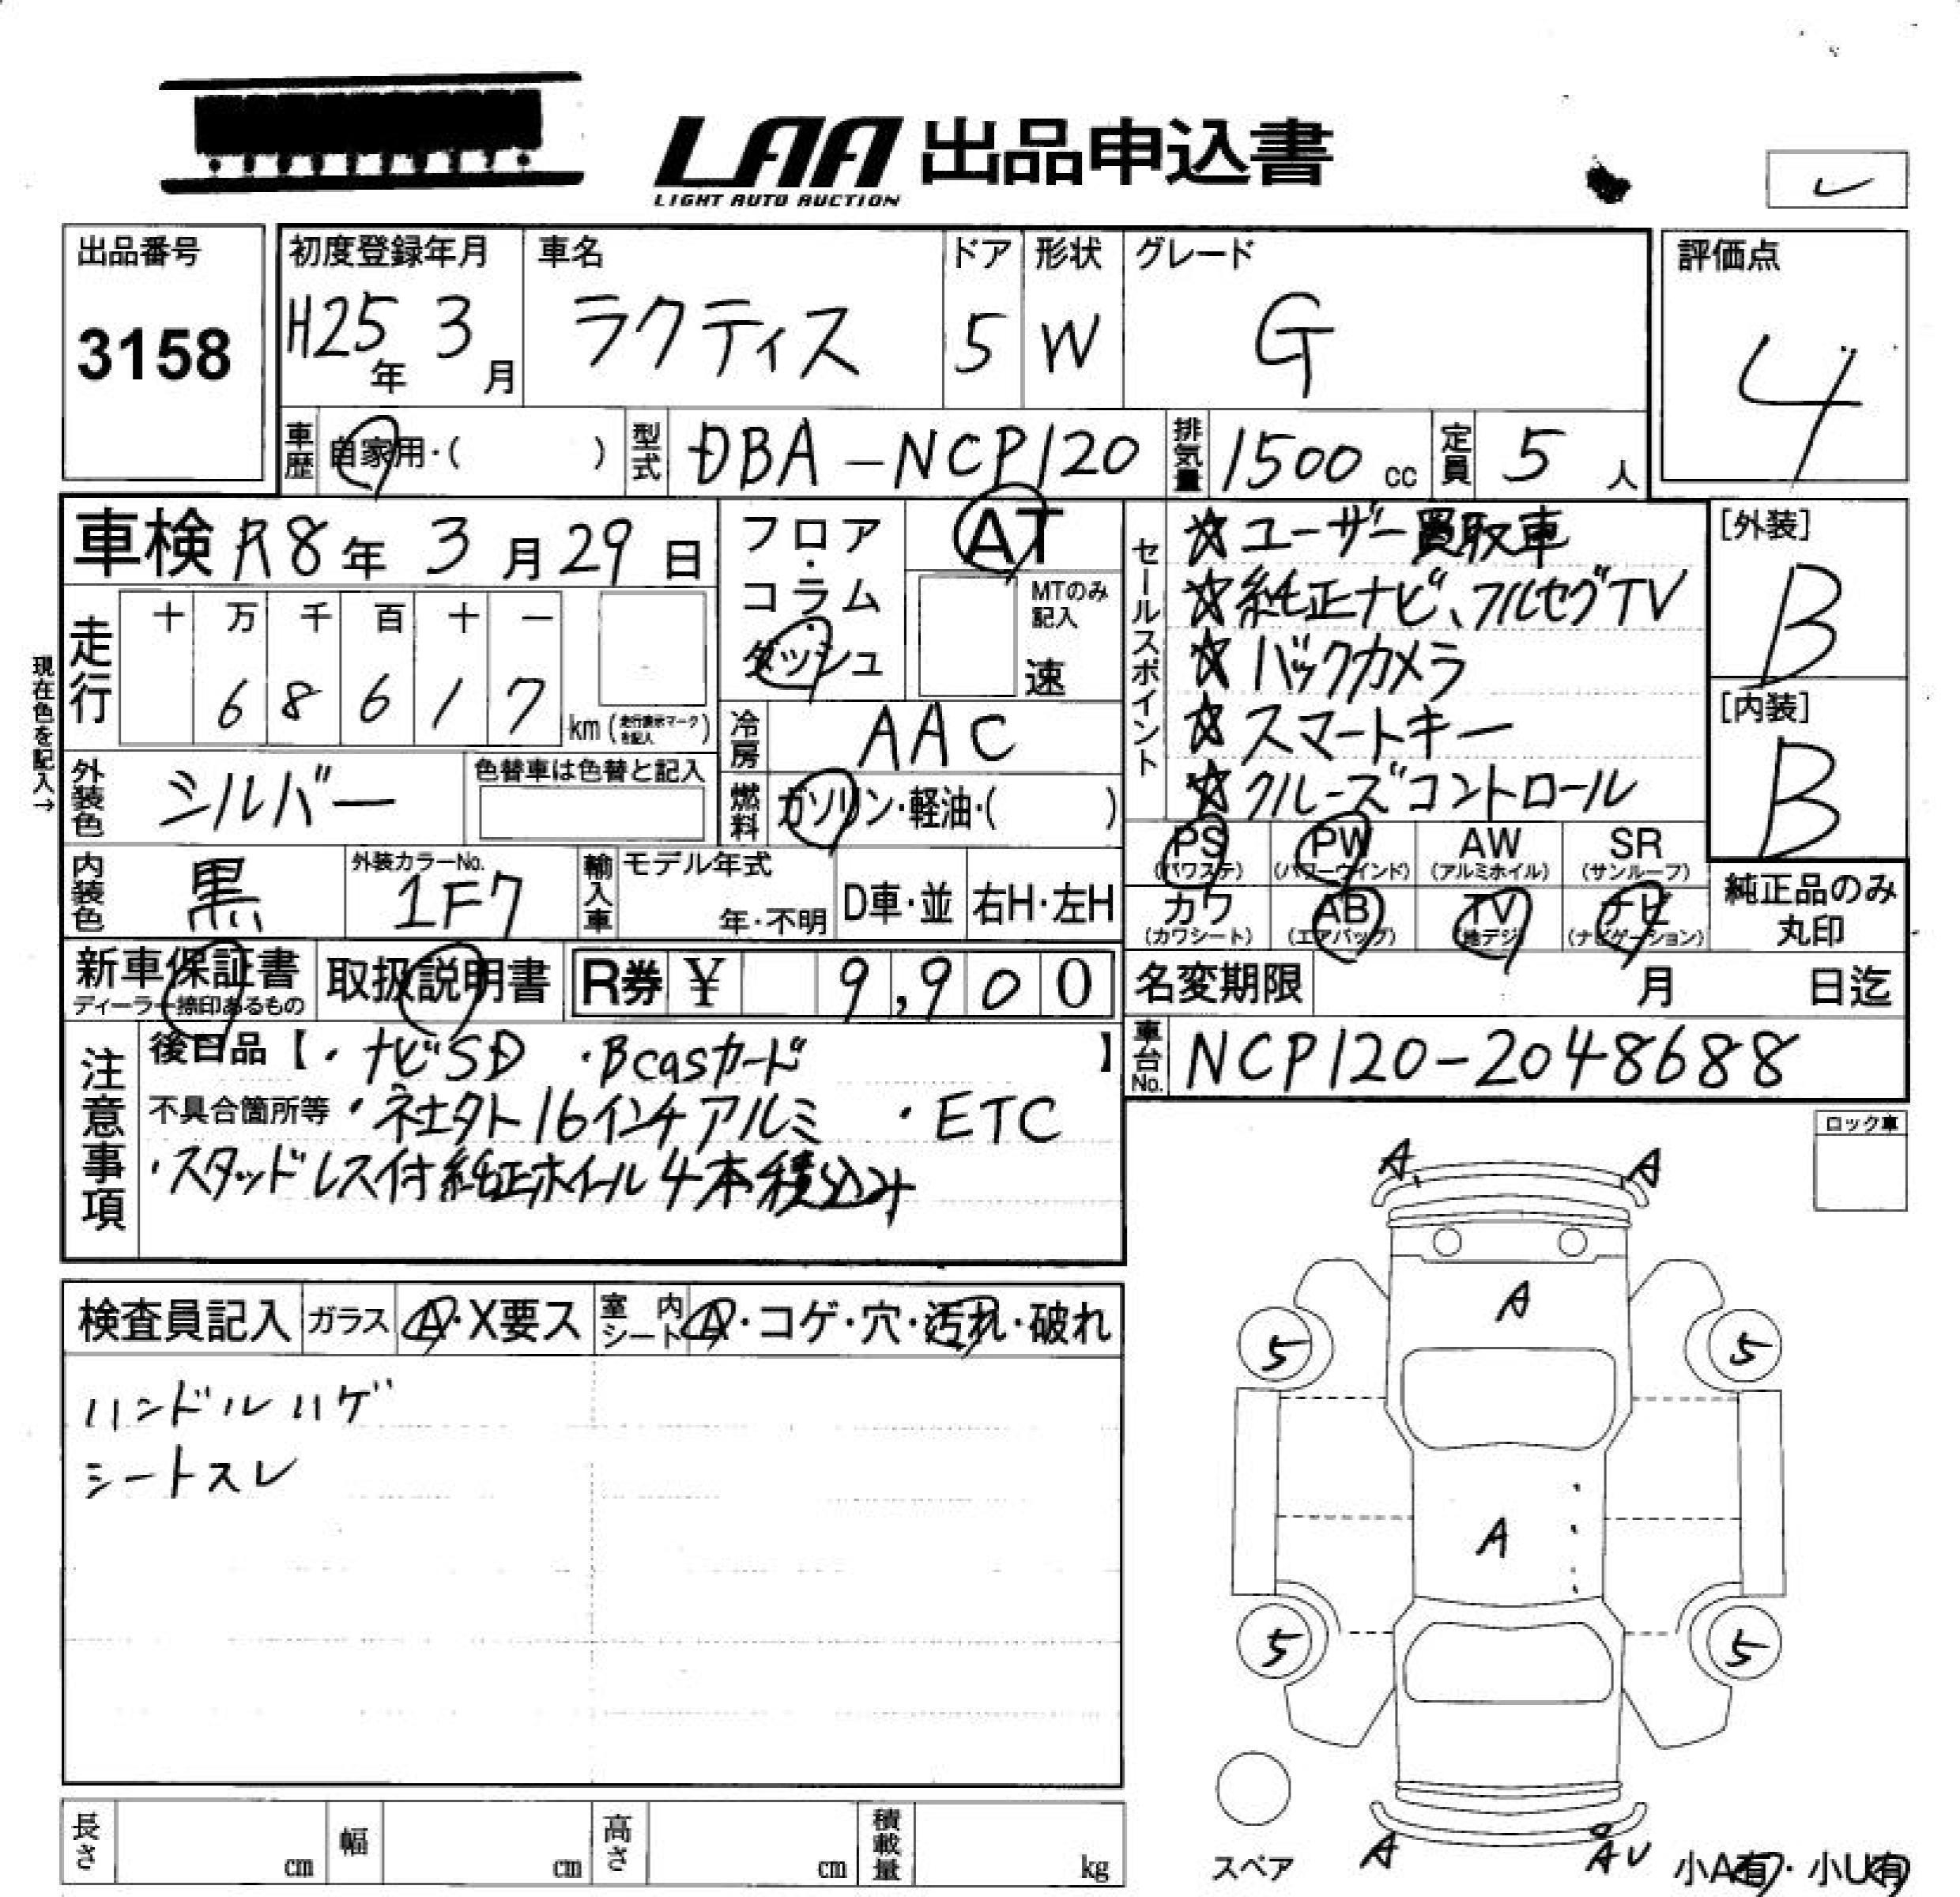 LAA 出品申込書
LIGHT AUTO AUCTION
出品番号
3158
初度登録年月
H25年 3月
車名
ラクティス
ドア
5
形状
W
グレード
G
評価点
4
車歴 自家用・( )
型式 DBA-NCP120
排気量 1500 cc
定員 5 人
車検 R8年 3月 29日
走行
十 万 千 百 十 一
6 8 6 1 7
km (走行表示マークを記入)
現在色を記入→
フロア・コラム
ダッシュ
AT
MTのみ記入
速
冷房 AAC
燃料 ガソリン・軽油・( )
外装色 シルバー
色替車は色替と記入
内装色 黒
外装カラーNo.
1F7
輸入車 モデル年式
年・不明
D車・並
右H・左H
セールスポイント
☆ユーザー買取車
☆純正ナビ、フルセグTV
☆バックカメラ
☆スマートキー
☆クルーズコントロール
[外装]
B
[内装]
B
PS
(パワステ)
PW
(パワーウインド)
AW
(アルミホイル)
SR
(サンルーフ)
カワ
(カワシート)
AB
(エアバッグ)
TV
(地デジ)
ナビ
(ナビゲーション)
純正品のみ
丸印
新車保証書
ディーラー捺印あるもの
取扱説明書
R券 ¥ 9,900
名変期限 月 日迄
車台No. NCP120-2048688
注意事項
後日品【・ナビSD ・Bcasカード 】
不具合箇所等 ・ネェクト16インチアルミ ・ETC
・スタッドレス付純正ホイール4本積込み
ロック車
検査員記入
ガラス A・X要ス
室内シート A・コゲ・穴・汚れ・破れ
ハンドルハゲ
シートスレ
A A
A
5 5
A
5 5
A AU
スペア
小A有・小U有
長さ cm
幅 cm
高さ cm
積載量 kg